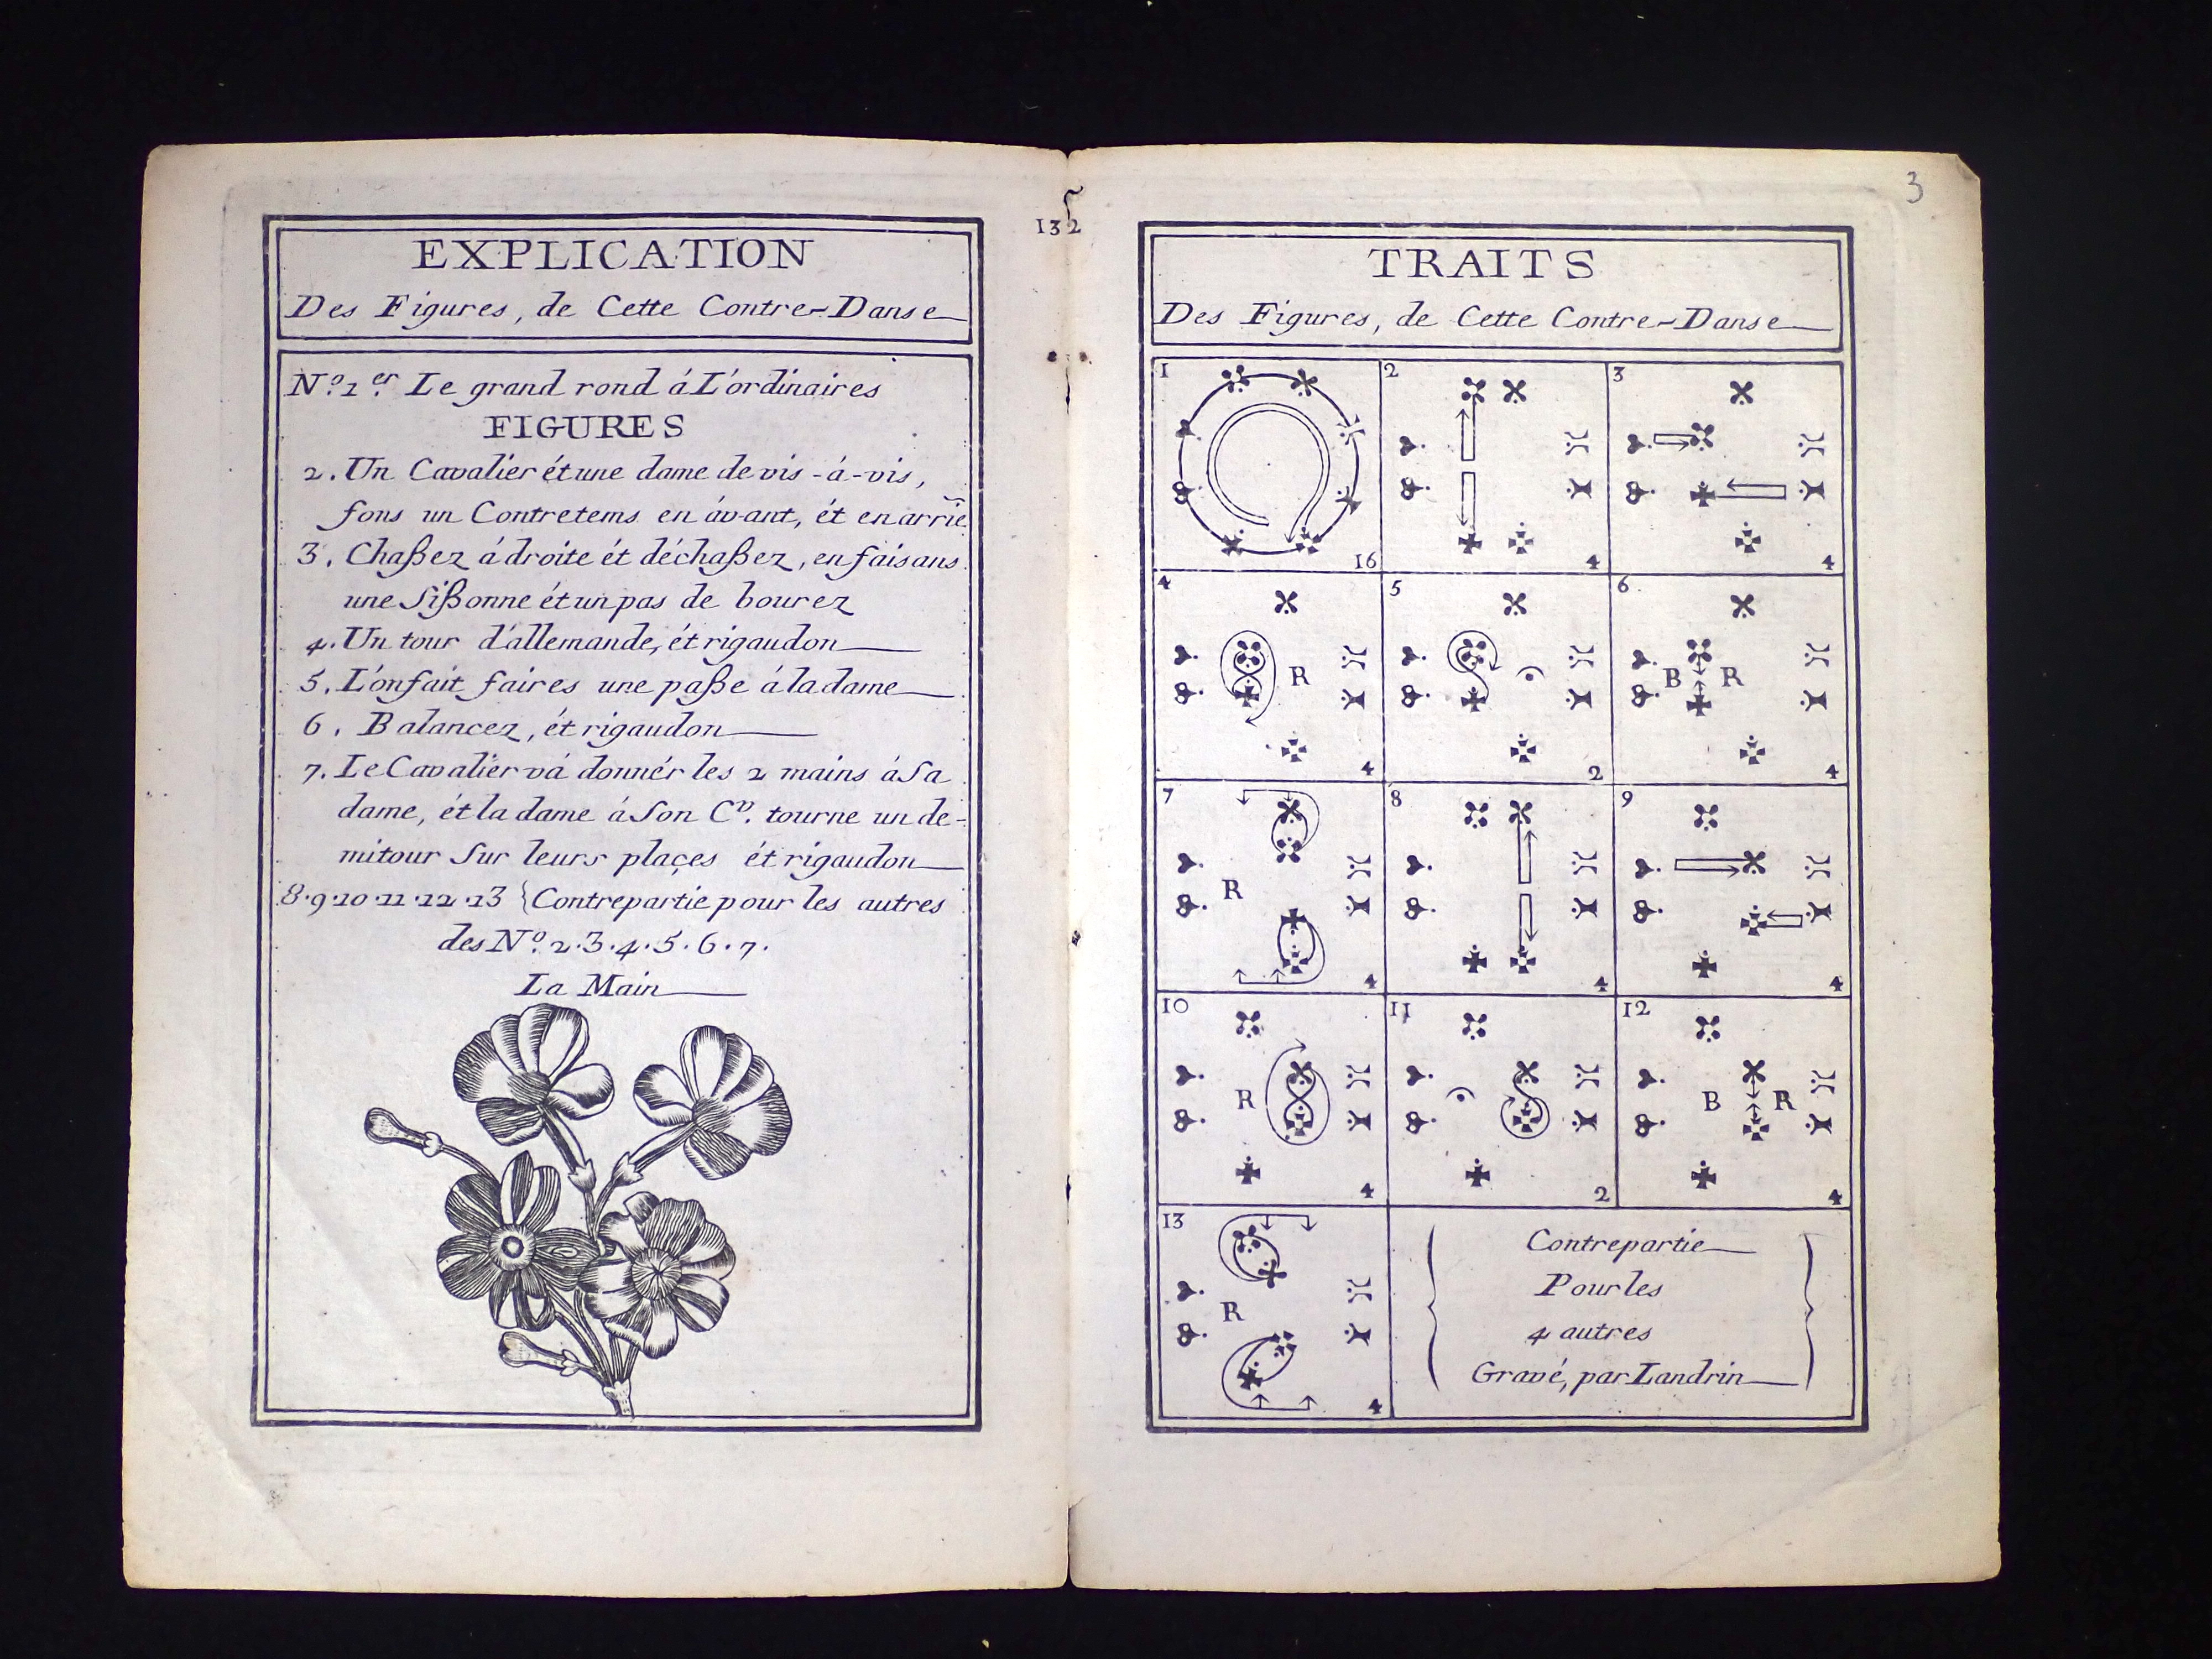 EXPLICATION
Des Figures, de Cette Contre-Danse
N.º 1.er Le grand rond á L'ordinaires
FIGURES
2. Un Cavalier ét une dame de vis-à-vis,
fons un Contretems en áv-ant, ét en arrie
3. Chaßez á droite ét déchaßez, en faisans
une Sißonne ét un pas de bourez
4. Un tour d'allemande, ét rigaudon
5. L'on fait faires une paße á la dame
6. Balancez, ét rigaudon
7. Le Cavalier vá donnér les 2 mains á Sa
dame, ét la dame á Son C.r tourne un de-
mitour Sur leurs plaçes ét rigaudon
8·9·10·11·12·13 {Contrepartie pour les autres
des N.º 2·3·4·5·6·7.
La Main
132
3
TRAITS
Des Figures, de Cette Contre-Danse
1 16
2 4
3 4
4 R 4
5 2
6 B R 4
7 R 4
8 4
9 4
10 R 4
11 2
12 B R 4
13 R 4
Contrepartie
Pour les
4 autres
Gravé, par Landrin